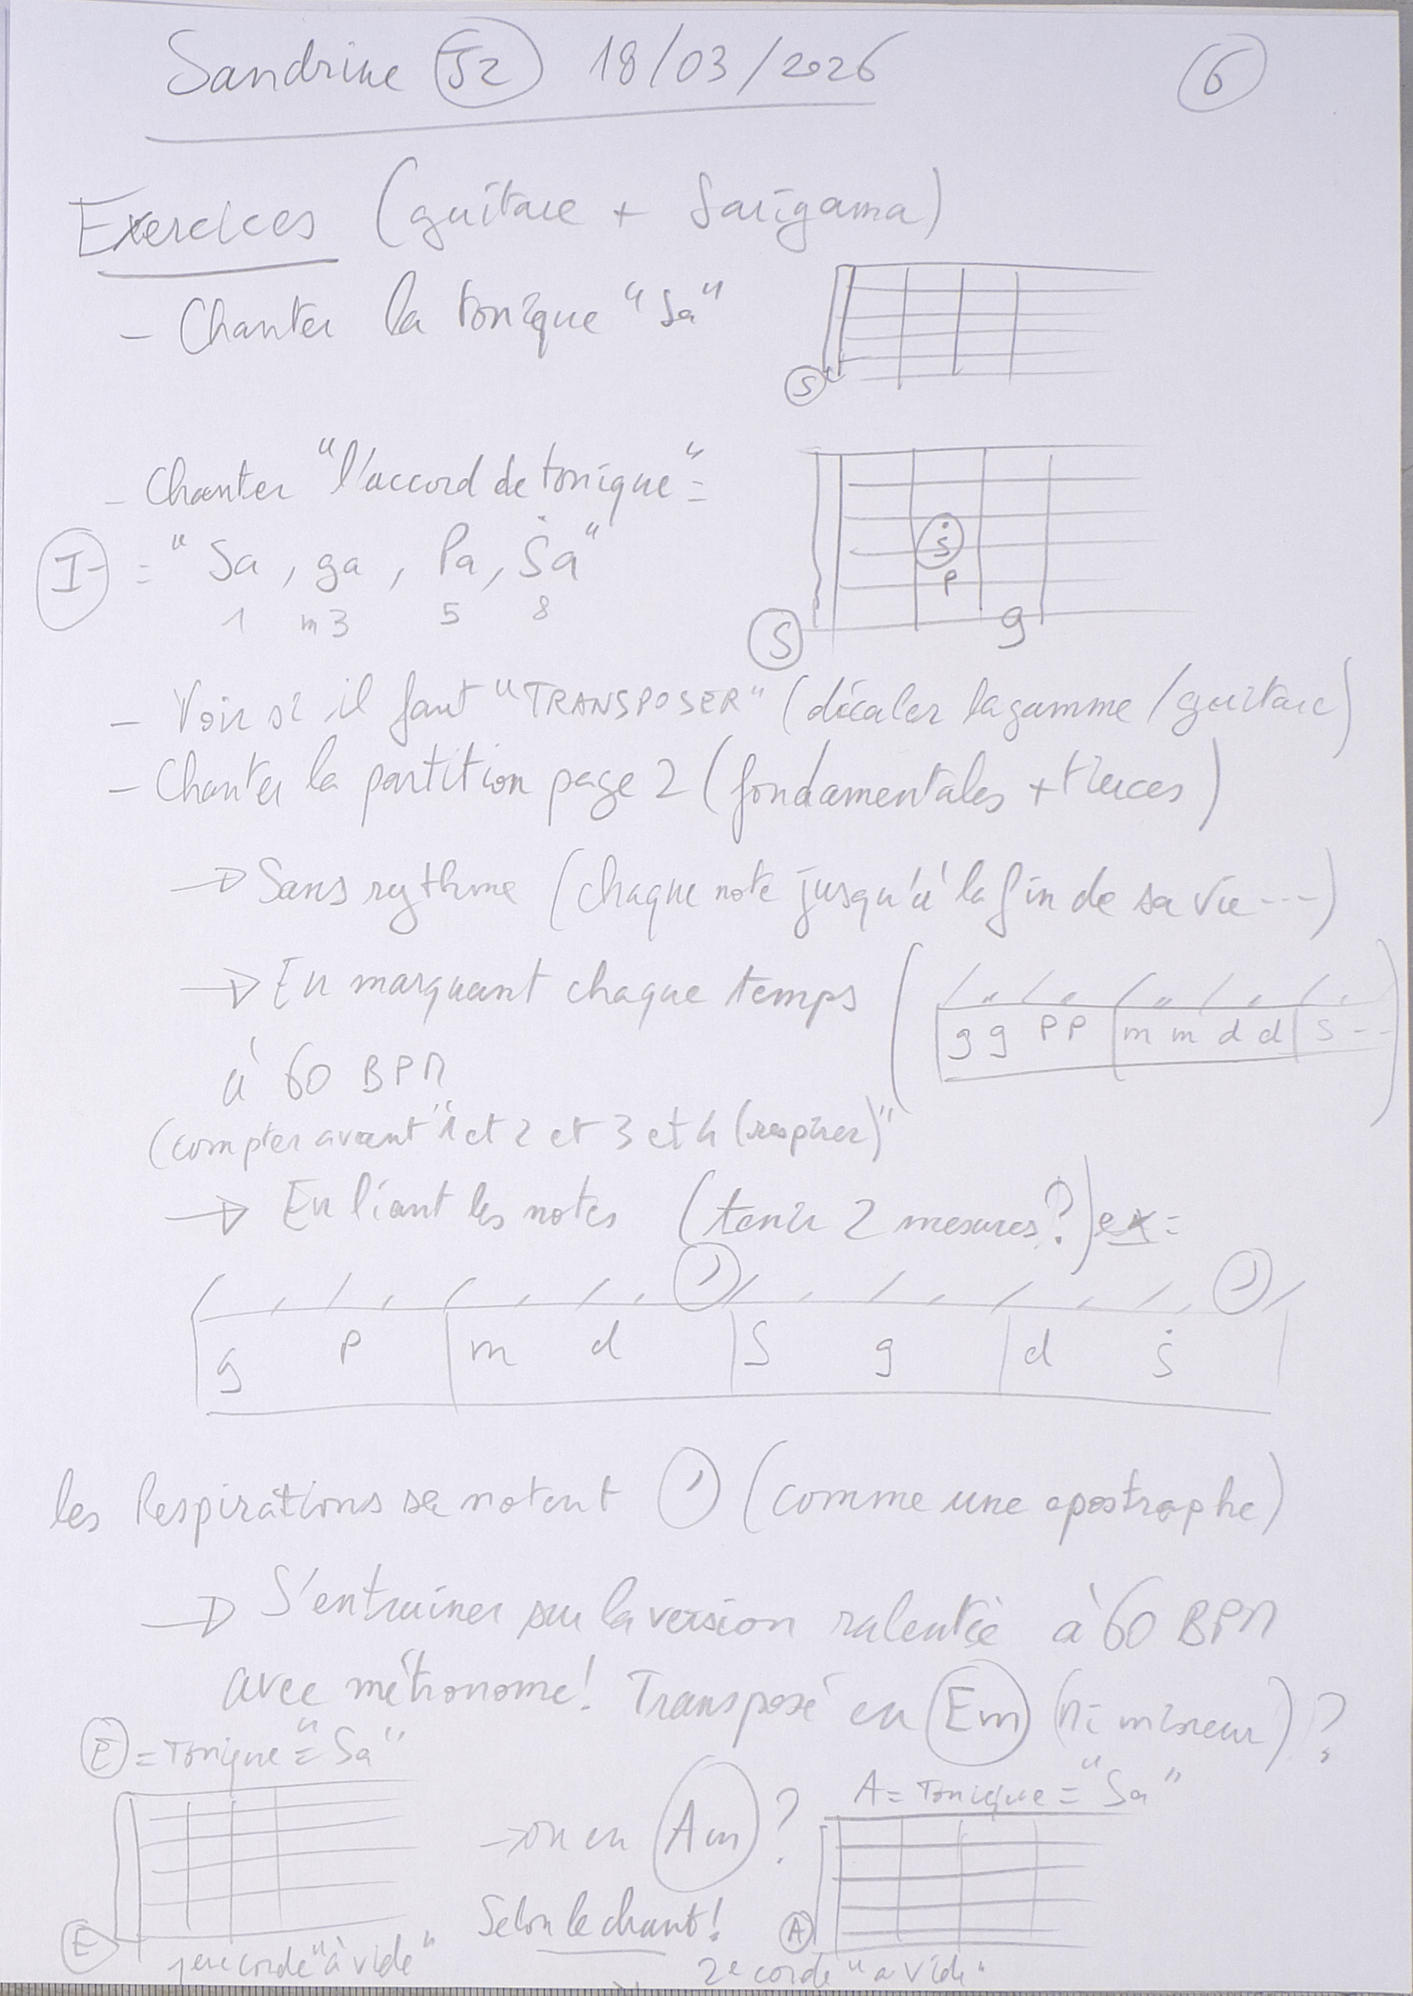 Sandrine 52 18/03/2026
6
Exercices (guitare + Sarigama)
- Chanter la tonique "Sa"
S
- Chanter "l'accord de tonique" =
I- = "Sa, ga, Pa, Ṡa"
1 m3 5 8
ṡ
P
g
S
- Voir si il faut "TRANSPOSER" (décaler la gamme / guitare)
- Chanter la partition page 2 (fondamentales + tierces)
→ Sans rythme (chaque note jusqu'à la fin de sa vie ---)
→ En marquant chaque temps
g g P P | m m d d | S - -
à 60 BPM
(compter avant "1 et 2 et 3 et 4 (respirer)"
→ En liant les notes (tenir 2 mesures?) ex =
’ ’
g P | m d | S g | d ṡ
les Respirations se notent ’ (comme une apostrophe)
→ S'entrainer sur la version ralentie à 60 BPM
avec métronome! Transposé en Em (mi mineur)?
E = Tonique = "Sa"
A = Tonique = "Sa"
→ ou en Am?
Selon le chant!
E
A
1ere corde "à vide"
2e corde "a vide"